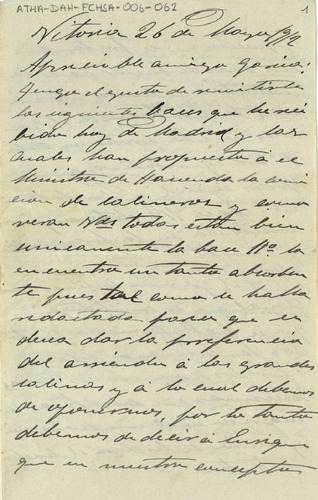 ATHA-DAH-FCHSA-006-062
1
Vitoria 26 de Mayo 1912
Apreciable amigo Garcia:
Tengo el gusto de remitirle
las siguientes bases que he reci
bido hoy de Madrid y las
cuales han propuesto á el
Ministro de Hacienda la comi
sion de salineros y como
veran Vdes todas estan bien
unicamente la base 11ª la
encuentro un tanto absorben
te pues tal como se halla
redactada parece que se
desea dar la preferencia
del arriendo á las grandes
salinas y á lo cual debemos
de oponernos, por lo tanto
debemos de decir á Enrique
que en nuestro concepto